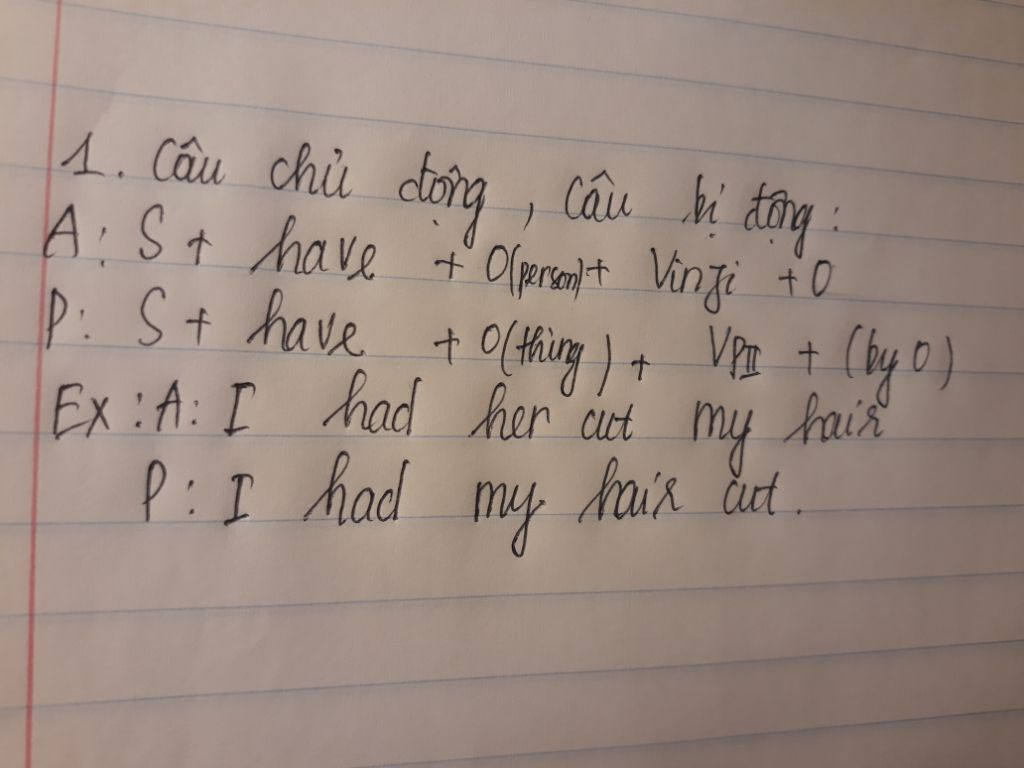 1. Câu chủ động, câu bị động:
A: S + have + O(person) + Vinfi + O
P: S + have + O(thing) + VPII + (by O)
Ex: A: I had her cut my hair
P: I had my hair cut.